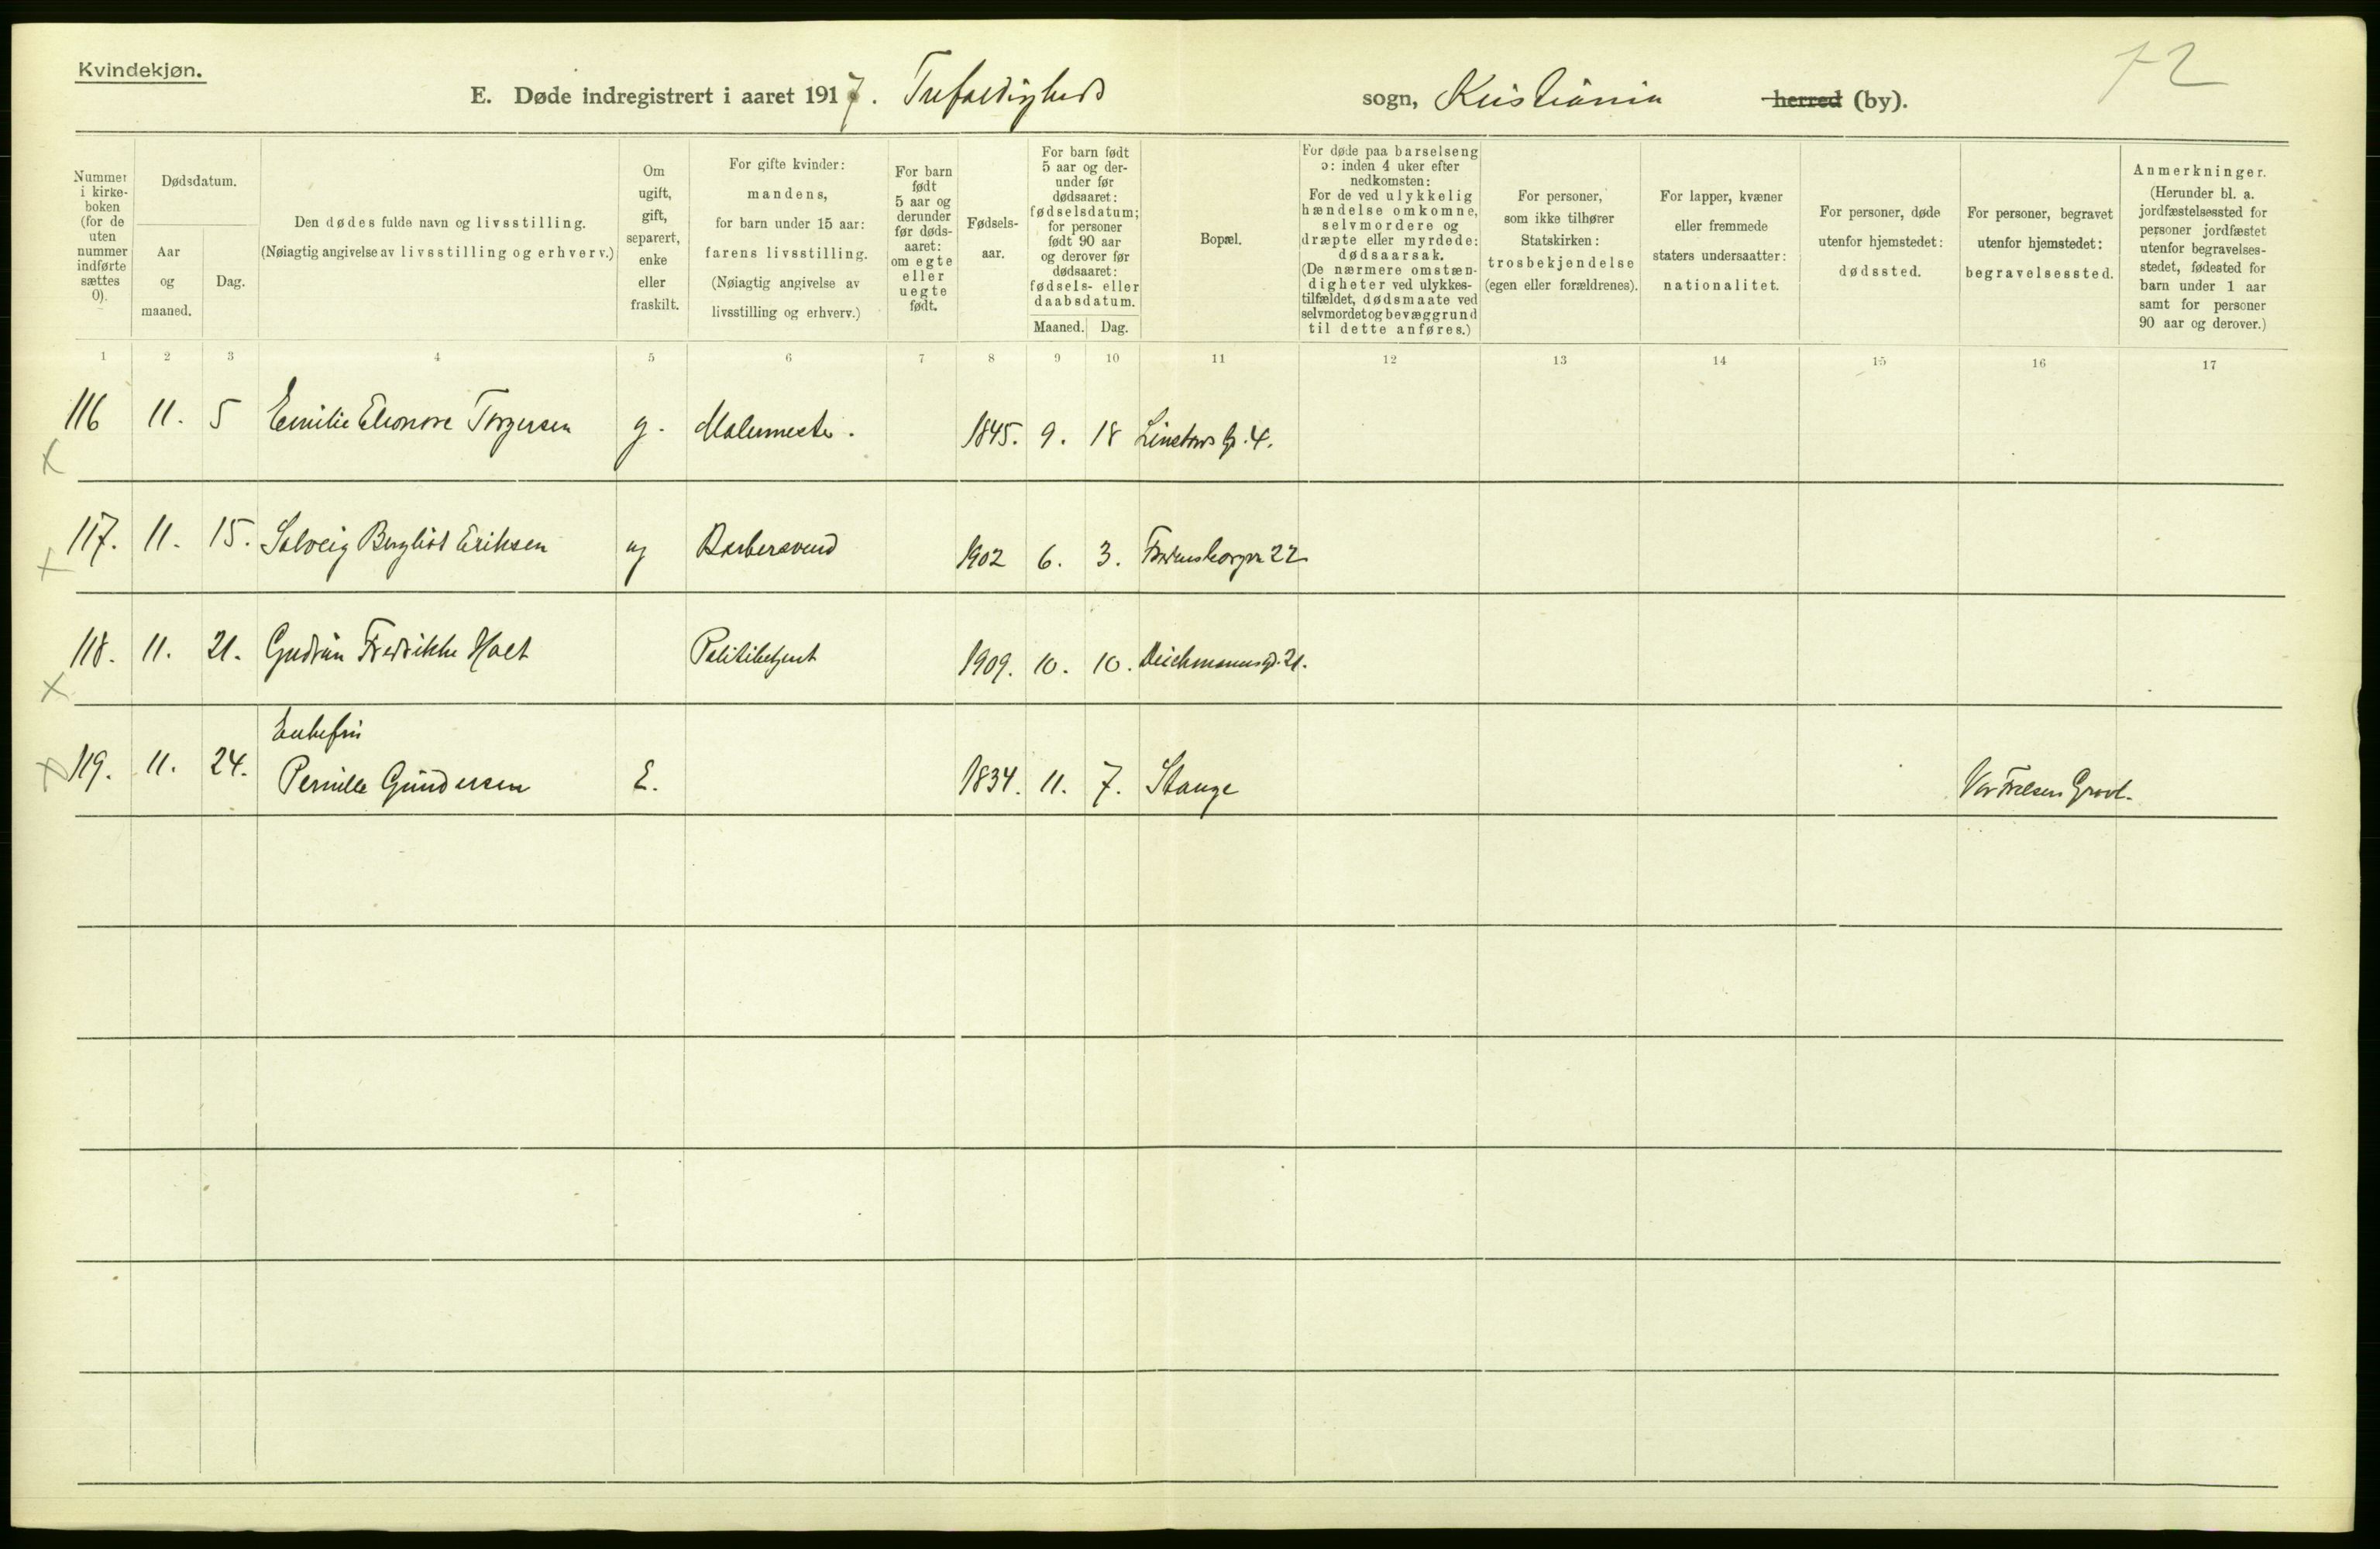 Kvindekjøn.
72
E. Døde indregistrert i aaret 1917. Trefoldigheds sogn, Kristiania herred (by).
Nummer i kirke-boken (for de uten nummer indførte sættes 0).
Dødsdatum.
Aar og maaned.
Dag.
Den dødes fulde navn og livsstilling.
(Nøiagtig angivelse av livsstilling og erhverv.)
Om ugift, gift, separert, enke eller fraskilt.
For gifte kvinder: mandens, for barn under 15 aar: farens livsstilling. (Nøiagtig angivelse av livsstilling og erhverv.)
For barn født 5 aar og derunder før døds-aaret: om egte eller uegte født.
Fødsels-aar.
For barn født 5 aar og der-under før dødsaaret: fødselsdatum; for personer født 90 aar og derover før dødsaaret: fødsels- eller daabsdatum.
Maaned. Dag.
Bopæl.
For døde paa barselseng ɔ: inden 4 uker efter nedkomsten: For de ved ulykkelig hændelse omkomne, selvmordere og dræpte eller myrdede: dødsaarsak. (De nærmere omstæn-digheter ved ulykkes-tilfældet, dødsmaate ved selvmordet og bevæggrund til dette anføres.)
For personer, som ikke tilhører Statskirken: trosbekjendelse (egen eller forældrenes).
For lapper, kvæner eller fremmede staters undersaatter: nationalitet.
For personer, døde utenfor hjemstedet: dødssted.
For personer, begravet utenfor hjemstedet: begravelsessted.
Anmerkninger. (Herunder bl. a. jordfæstelsessted for personer jordfæstet utenfor begravelses-stedet, fødested for barn under 1 aar samt for personer 90 aar og derover.)
1 2 3 4 5 6 7 8 9 10 11 12 13 14 15 16 17
116 11. 5 Emilie Eleonore Torgersen g. Malermester. 1845. 9. 18 Linstows g. 4.
x
117. 11. 15. Solveig Bergliot Eriksen ug Barbersvend 1902 6. 3. 22
x
118. 11. 21. Gudrun Fredrikke Holt Politibetjent 1909. 10. 10. Deichmannsgd. 21.
x
Enkefru
x 119. 11. 24. Pernille Gundersen E. 1834. 11. 7. Stange Vor Frelsers Gravl.